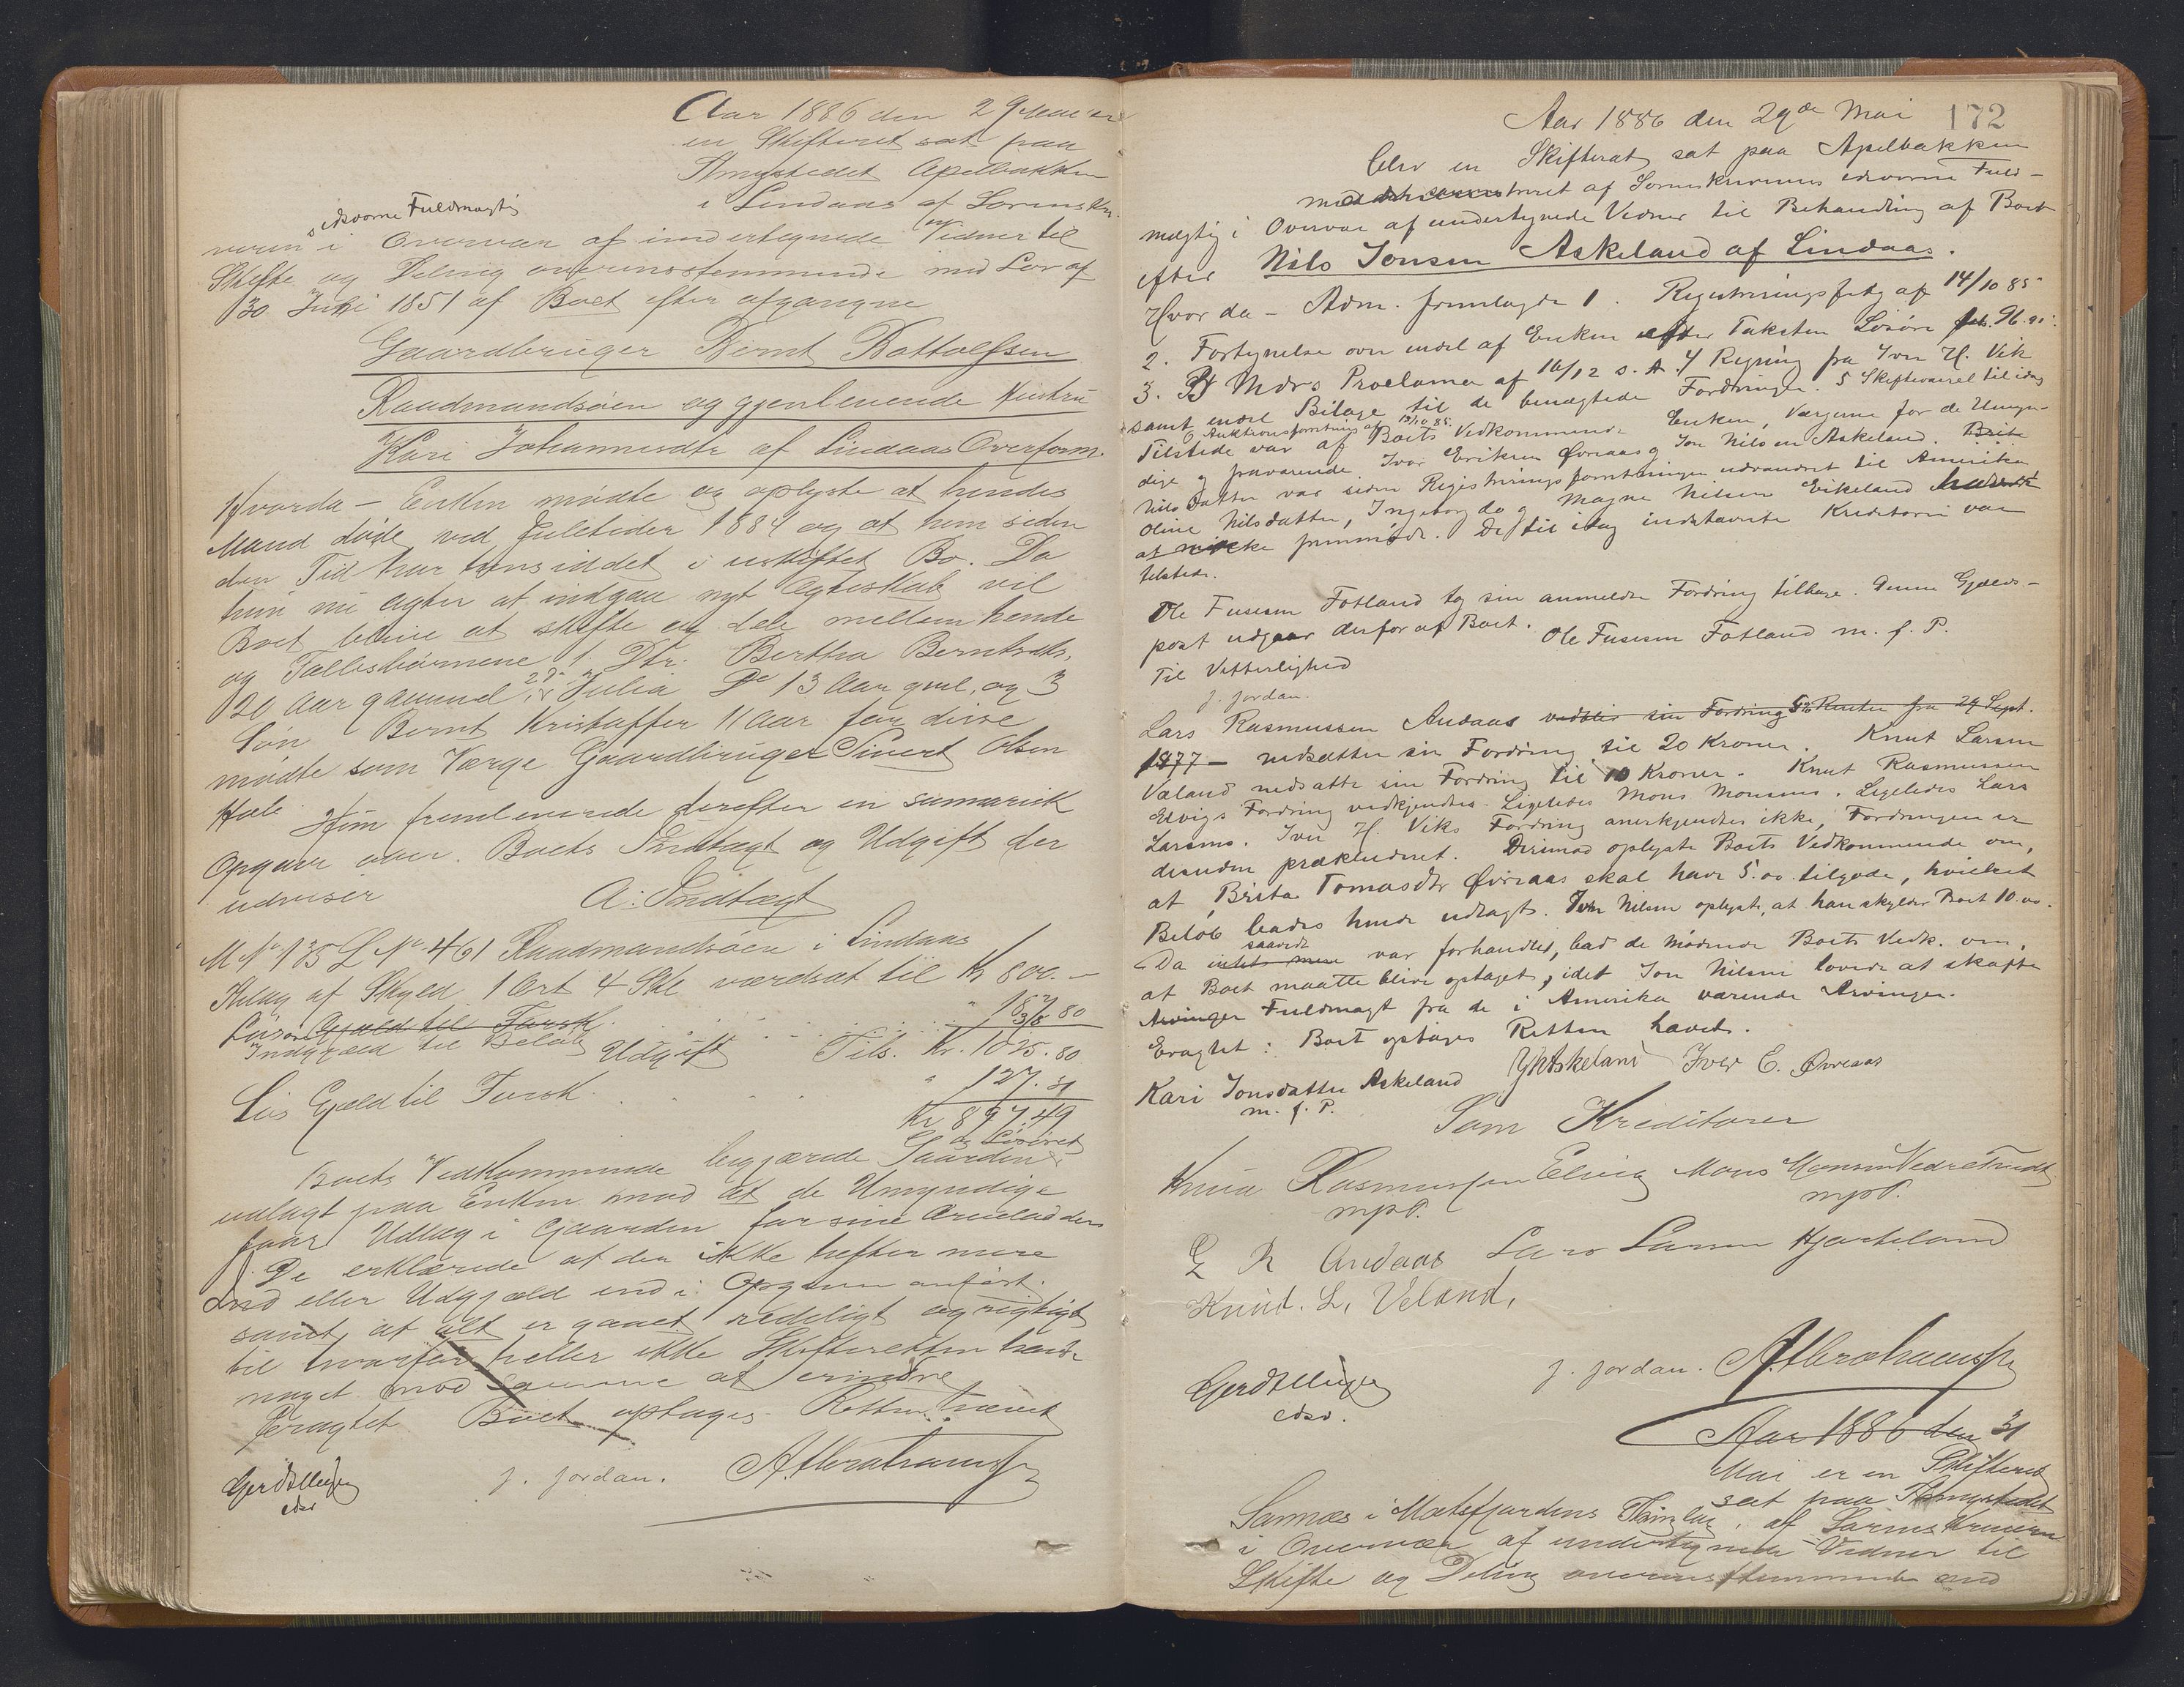 Aar 1886 den 29de Mai er
en Skifteret sat paa
Thingstedet Apelbakken
i Lindaas af Sorenskri-
verens edsvorne Fuldmægtig i Overvær af undertegnede Vidner til
Skifte og Deling overensstemmende med Lov af
30 Juli 1851 af Boet efter afgangne
Gaardbruger Bernt Bottolfsen
Raudmandsøen og gjenlevende Hustru
Kari Johannesdtr af Lindaas Overform.
Hvorda – Enken mødte og oplyste at hendes
Mand døde ved Juletider 1884 og at hun siden
den Tid har hensiddet i uskiftet Bo. Da
hun nu agter at indgaa nyt Ægteskab vil
Boet blive at skifte og dele mellem hende
og Fællesbørnene 1 Dtr. Bertha Berntsdtr,
20 Aar gammel, 2 Julia Do 13 Aar gml. og 3
Søn Bernt Kristoffer 11 Aar for disse
mødte som Værge Gaardbruger Sivert Olsen
Hun fremleverede derefter en summarisk
Opgave over Boets Indtægt og Udgift der
udviser
A: Indtægt
M No 135 L No 461 Raudmandsøen i Lindaas
af Skyld 1 Ort 4 Skl. værdsat til Kr 800.–
Løsøre Gjæld til Forsk.
Indgjæld til Beløb
Udgift Tils. Kr. 1025.80
Gjæld til Forsk. " 127.31
Kr 897.49
og Løsøret
Boets Vedkommende begjærede Gaarden
udlagt paa Enken mod at de Umyndige
faar Udlæg i Gaarden for sine Arvelodder
De erklærede at der ikke hefter mere
Ind eller Udgjæld end i Opgaven anført
samt at alt er gaaet redeligt og rigtigt
til hvorfor heller ikke Skifteretten havde
noget mod samme at erindre
Eragtet Boet optages. Retten hævet
Gerdt Meyer
edsv
J. Jordan. A. Abrahamsen
172
Aar 1886 den 29de Mai
blev en Skifteret sat paa Apelbakken
af Sorenskriverens edsvorne Fuld-
mægtig i Overvær af undertegnede Vidner til Behandling af Boet
efter Nils Jonsen Askeland af Lindaas.
Hvor da – Adm. fremlagde 1. Registreringsfretg af 14/10 85
2. Fortegnelse over endel af Enken efter Taksten Løsøre
3. Mdrs Proclama af 16/12 s. A. 4 Regning fra Iver H. Vik
samt endel Bilage til de benægtede Fordringer. 5 Skiftevarsel til idag
6 Auktionsforretning af 19/10 85.
Tilstede var af Boets Vedkommende Enken, Værgerne for de Umyn-
dige og fraværende Iver Eriksen Øvreaas og Jon Nilsen Askeland. Brite
Nilsdatter var siden Registreringsforretningen udvandret til Amerika
Oline Nilsdatter, Ingeborg do og Magne Nilsen Eikeland
at møde fremmødt. De til idag indstævnte Kreditorer var
tilstede.
Ole Fusesen Fotland tog sin anmeldte Fordring tilbage. Denne Gjælds-
post udgaar derfor af Boet. Ole Fusesen Fotland m. f. P.
Til Vitterlighed
J. Jordan.
Lars Rasmussen Andaas vedblev sin Fordring 5% Renter fra 29 Sept.
1877 – nedsætter sin Fordring til 20 Kroner. Knut Larsen
Væland nedsatte sin Fordring til 10 Kroner. Knut Rasmussen
Elvigs Fordring vedkjendtes. Ligeledes Mons Monsens. Ligeledes Lars
Larsens. Iver H. Viks Fordring anerkjendtes ikke, Fordringen er
desuden prækluderet. Derimod oplyste Boets Vedkommende om,
at Brita Tomasdtr Øvreaas skal have 5.00 tilgode, hvilket
Beløb bades hende udlagt. Jon Nilsen oplyste, at han skylder Boet 10.00.
Da intet mere saavidt var forhandlet, bad de mødende Boets Vedk. om,
at Boet maatte blive optaget, idet Jon Nilsen lovede at skaffe
Arvinger Fuldmagt fra de i Amerika værende Arvinger.
Eragtet: Boet optages Retten hævet.
Kari Jonsdatter Askeland JNAskeland Iver E. Øvreaas
m. f. P.
Som Kreditorer
Knud Rasmussen Elvig Mons Monsen
mpP. mpP.
L R Andaas Lars Larsen Hjarteland
Knud. L. Veland,
Gerdt Meyer
edsv.
J. Jordan. A. Abrahamsen
Aar 1886 den 31
Mai er en Skifteret
sat paa Thingstedet
Sannes i Matsfjordens Thinglag, af Sorenskriveren
i Overvær af undertegnede Vidner til
Skifte og Deling overensstemmende med